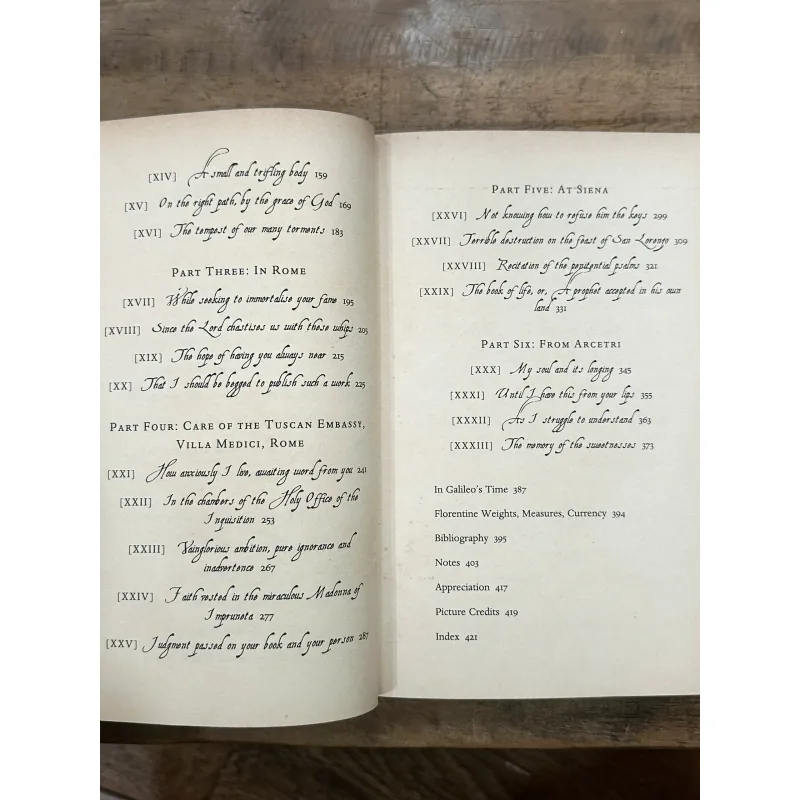 [XIV] A small and trifling body 159
[XV] On the right path, by the grace of God 169
[XVI] The tempest of our many torments 183
Part Three: In Rome
[XVII] While seeking to immortalise your fame 195
[XVIII] Since the Lord chastises us with these whips 205
[XIX] The hope of having you always near 215
[XX] That I should be begged to publish such a work 225
Part Four: Care of the Tuscan Embassy,
Villa Medici, Rome
[XXI] How anxiously I live, awaiting word from you 241
[XXII] In the chambers of the Holy Office of the
Inquisition 253
[XXIII] Vainglorious ambition, pure ignorance and
inadvertence 267
[XXIV] Faith vested in the miraculous Madonna of
Impruneta 277
[XXV] Judgment passed on your book and your person 287
Part Five: At Siena
[XXVI] Not knowing how to refuse him the keys 299
[XXVII] Terrible destruction on the feast of San Lorenzo 309
[XXVIII] Recitation of the penitential psalms 321
[XXIX] The book of life, or, A prophet accepted in his own
land 331
Part Six: From Arcetri
[XXX] My soul and its longing 345
[XXXI] Until I have this from your lips 355
[XXXII] As I struggle to understand 363
[XXXIII] The memory of the sweetnesses 373
In Galileo's Time 387
Florentine Weights, Measures, Currency 394
Bibliography 395
Notes 403
Appreciation 417
Picture Credits 419
Index 421